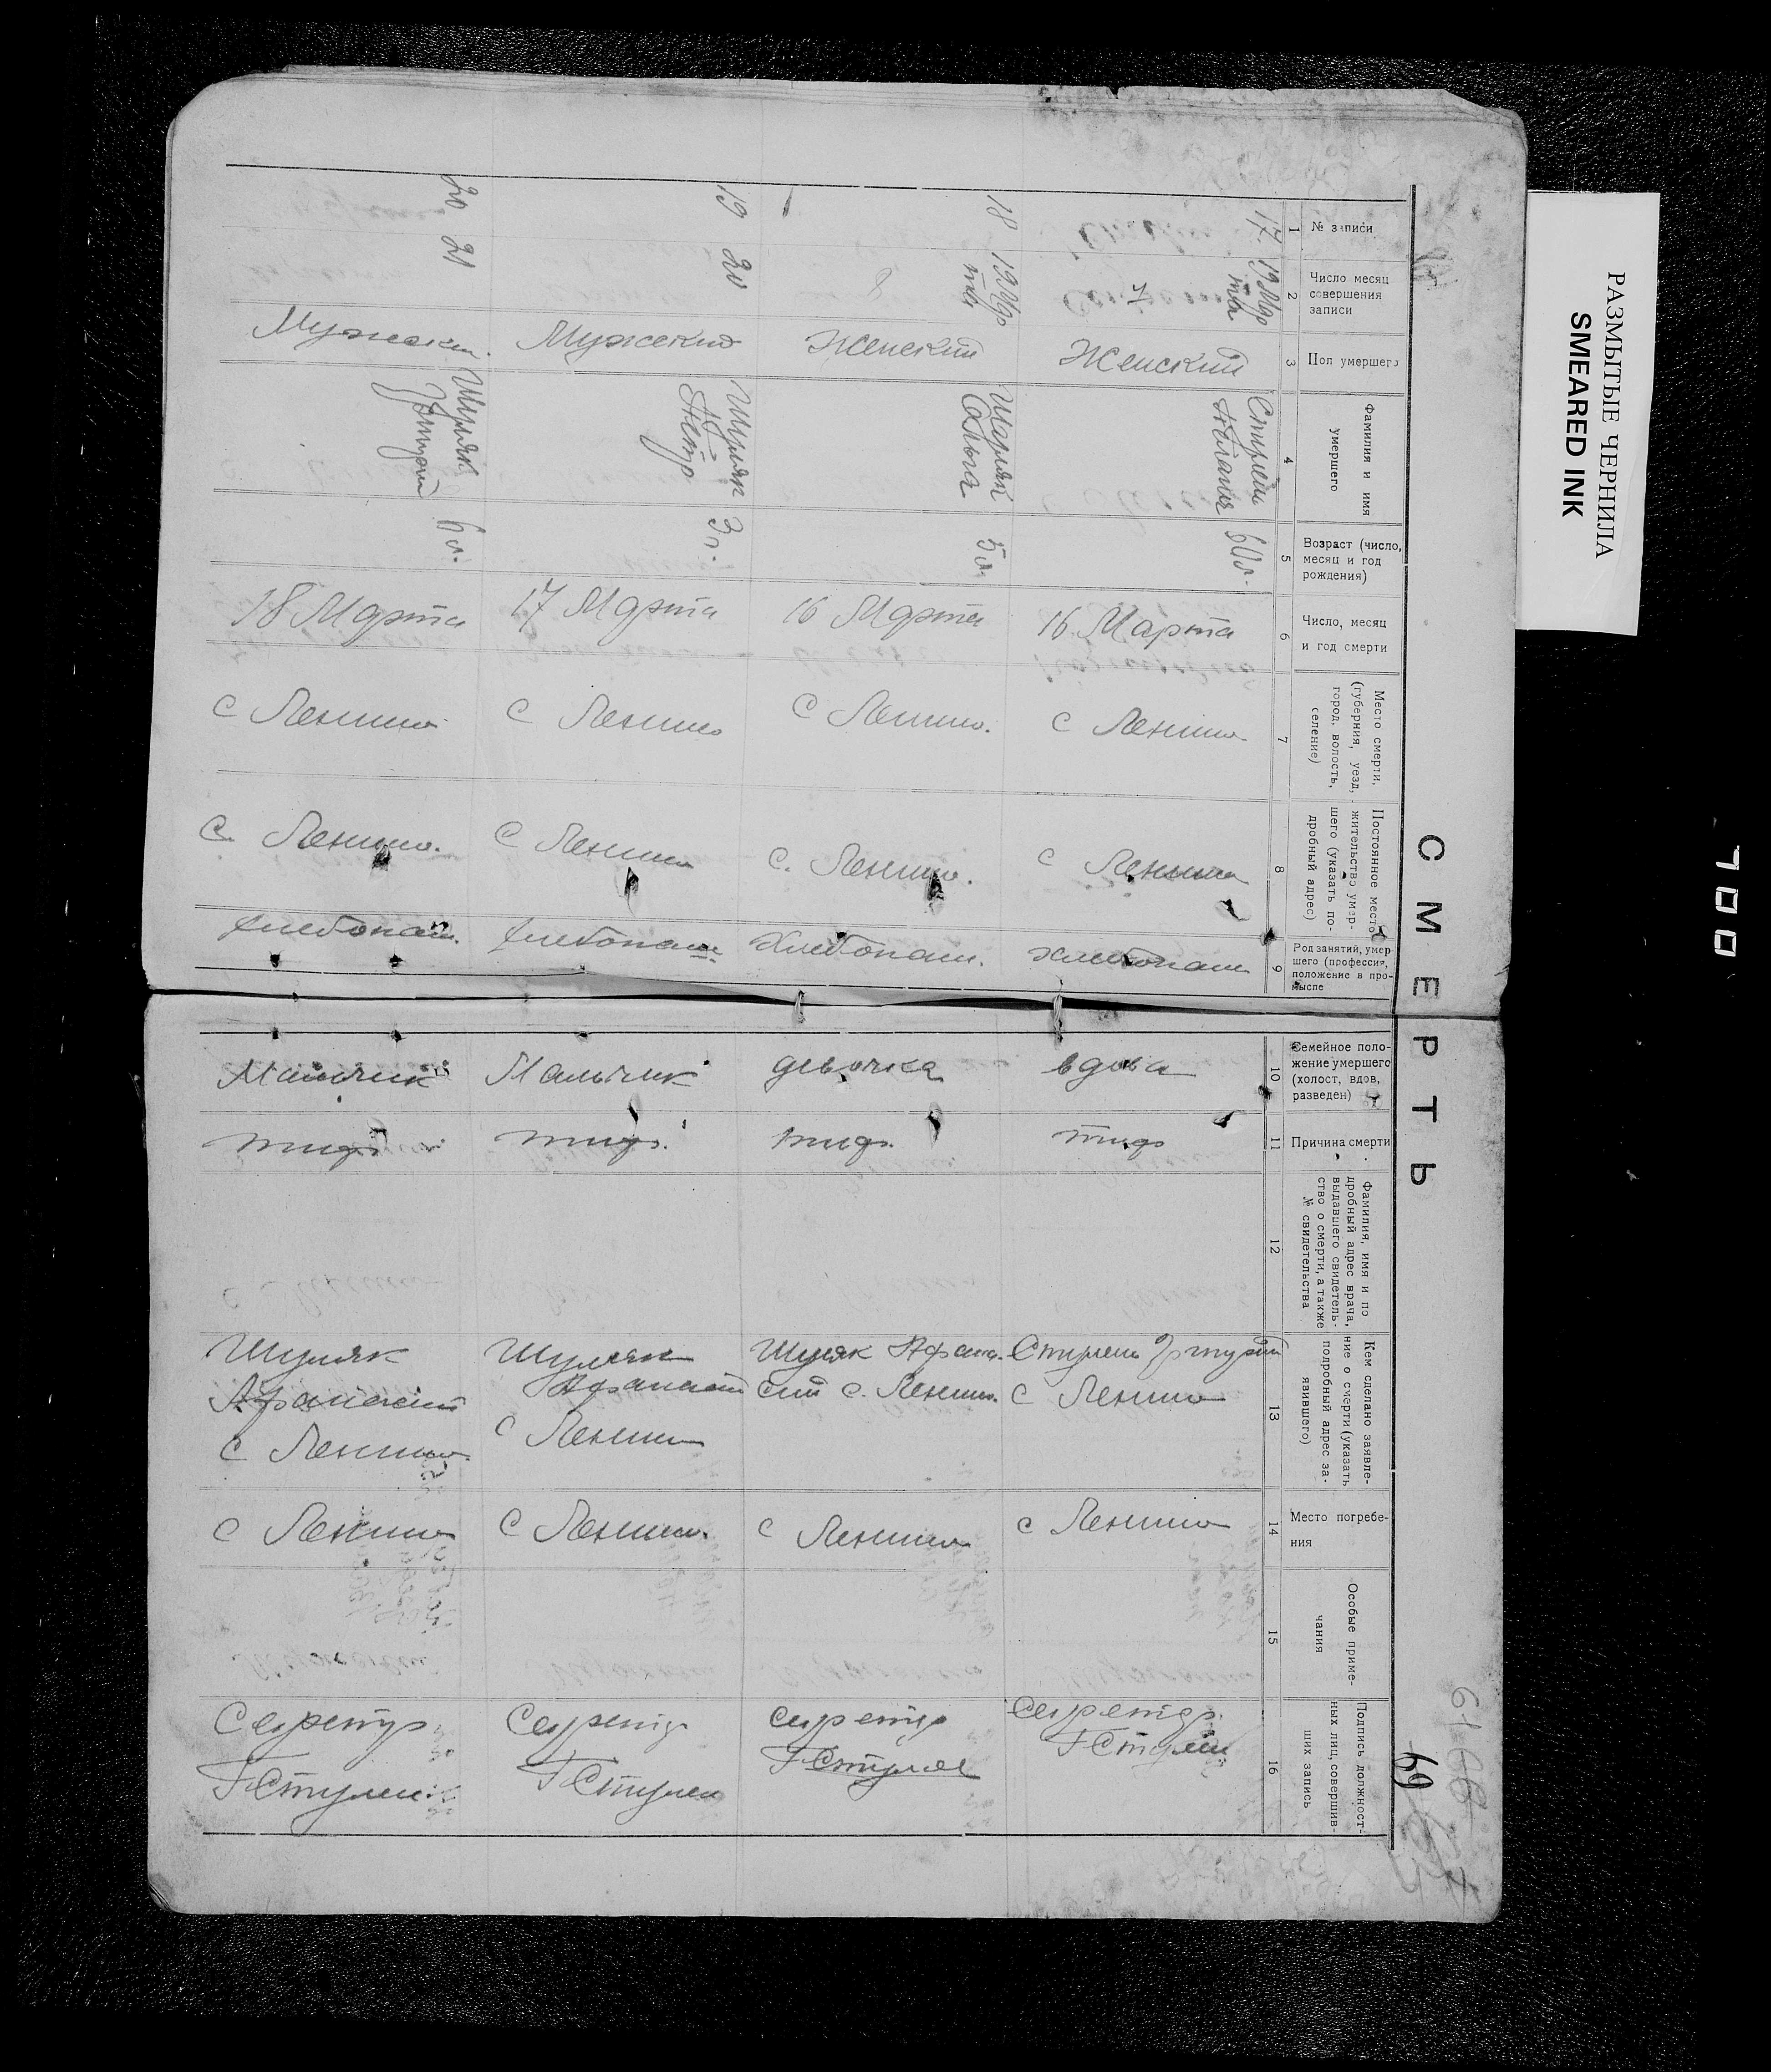 РАЗМЫТЫЕ ЧЕРНИЛА
SMEARED INK
700
СМЕРТЬ
69
1
№ записи
2
Число месяц
совершения
записи
3
Пол умершего
4
Фамилия и имя
умершего
5
Возраст (число,
месяц и год
рождения)
6
Число, месяц
и год смерти
7
Место смерти,
(губерния, уезд,
город, волость,
селение)
8
Постоянное место
жительство умер-
шего (указать по-
дробный адрес)
9
Род занятий, умер
шего (профессия,
положение в про-
мысле
10
Семейное поло-
жение умершего
(холост, вдов,
разведен)
11
Причина смерти
12
Фамилия, имя и по
дробный адрес врача,
выдавшего свидетель-
ство о смерти, а также
№ свидетельства
13
Кем сделано заявле-
ние о смерти (указать
подробный адрес за-
явившего)
14
Место погребе-
ния
15
Особые приме-
чания
16
Подпись должност-
ных лиц, совершив-
ших запись
17
19 Мар
та
Женский
Стулень
60 л.
16 Марта
с Ленино
с Ленино
хлебопаш.
вдова
тиф
Стулень Григорий
с Ленино
с Ленино
Секретар.
Г Стулен
18
19 Мар
та
Женский
Шуляк
Ольга
5 л.
16 Марта
с Ленино.
с. Ленино.
Хлебопаш.
девочка
тиф.
Шуляк Афана-
сий с. Ленино.
с Ленино
секретар
Г Стулен
19
20
Мужской
Шуляк
Петр
3 г.
17 Марта
с Ленино
с Ленино
хлебопаш.
Мальчик
тиф.
Шуляк
Афанасий
с Ленино
с Ленино.
Секретар
Г Стулен
20
21
Мужеск.
Шуляк
Григорий
6 л.
18 Марта
с Ленино
с. Ленино.
хлебопаш.
Мальчик
тиф
Шуляк
Афанасий
с Ленино
с Ленино
Секретар.
Г Стулен